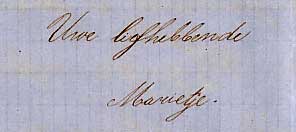 Uwe liefhebbende
Marietje.